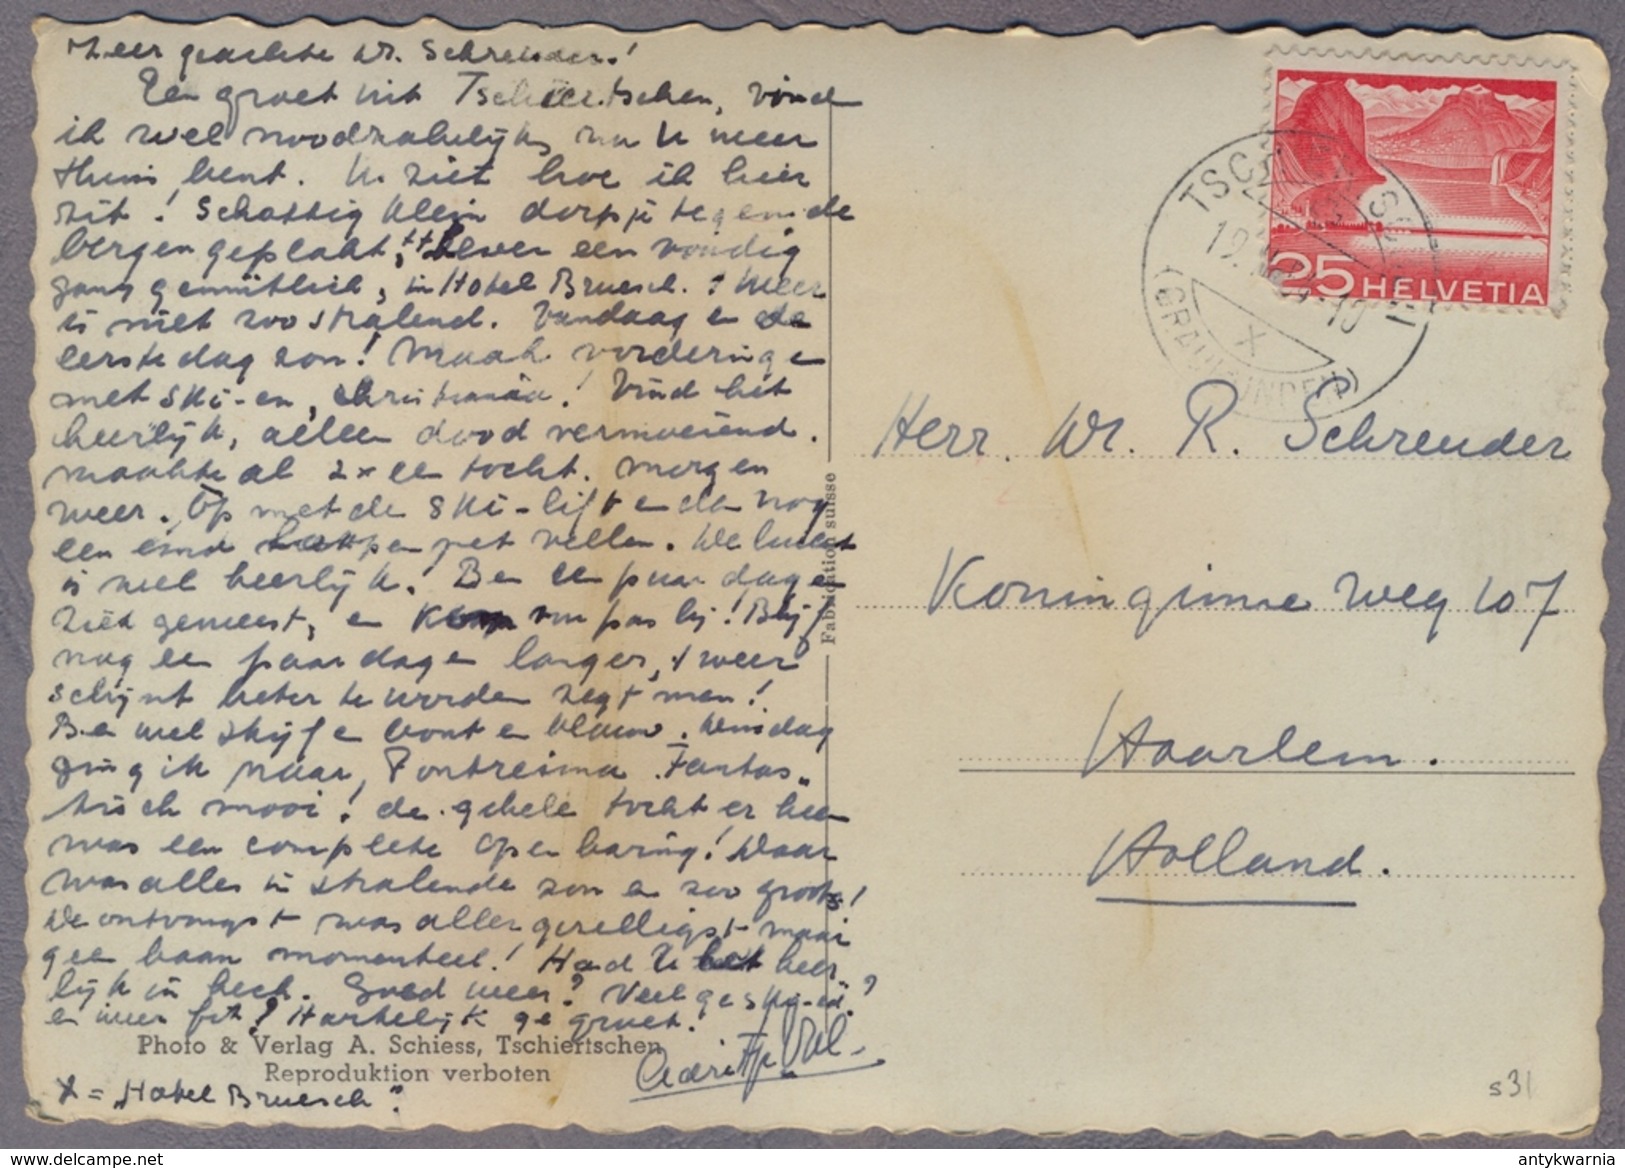 Zeer geachte Wr. Schreuder!
Een groet uit Tschiertschen, vind
ik wel noodzakelijk nu U weer
thuis bent. U ziet hoe ik hier
zit! Schattig klein dorpje tegen de
bergen geplakt, een voudig
ganz gemütlich, in Hotel Bruesch. Weer
is niet zoo stralend. Vandaag en de
eerste dag zon! Maak vorderingen
met ski-en, christiania! Vind het
heerlijk, alleen dood vermoeiend.
maakte al 2x een tocht. morgen
weer. Op met de ski-lift en dan nog
een eind met vellen. De lucht
is wel heerlijk! Ben een paar dagen
ziek geweest, en pas bij! Blijf
nog een paar dagen langer, 't weer
schijnt beter te worden zegt men!
Ben wel stijf en bont en blauw. Dinsdag
ging ik naar Pontresina. Fantas-
tisch mooi! de geheele tocht er heen
was een complete openbaring! Daar
was alles in stralende zon en zoo groots!
De ontvangst was aller gezelligst maar
geen baan momenteel! Had U het heer
lijk in Lech. Goed weer? Veel geski-ed?
en weer fit? Hartelijk ge groet!
Photo & Verlag A. Schiess, Tschiertschen
Reproduktion verboten
x = "Hotel Bruesch".
Fabrication suisse
25 HELVETIA
(GRAUBÜNDEN)
X
Herr. Wr. R. Schreuder
Koninginne weg 107
Haarlem.
Holland.
s31
delcampe.net
antykwarnia